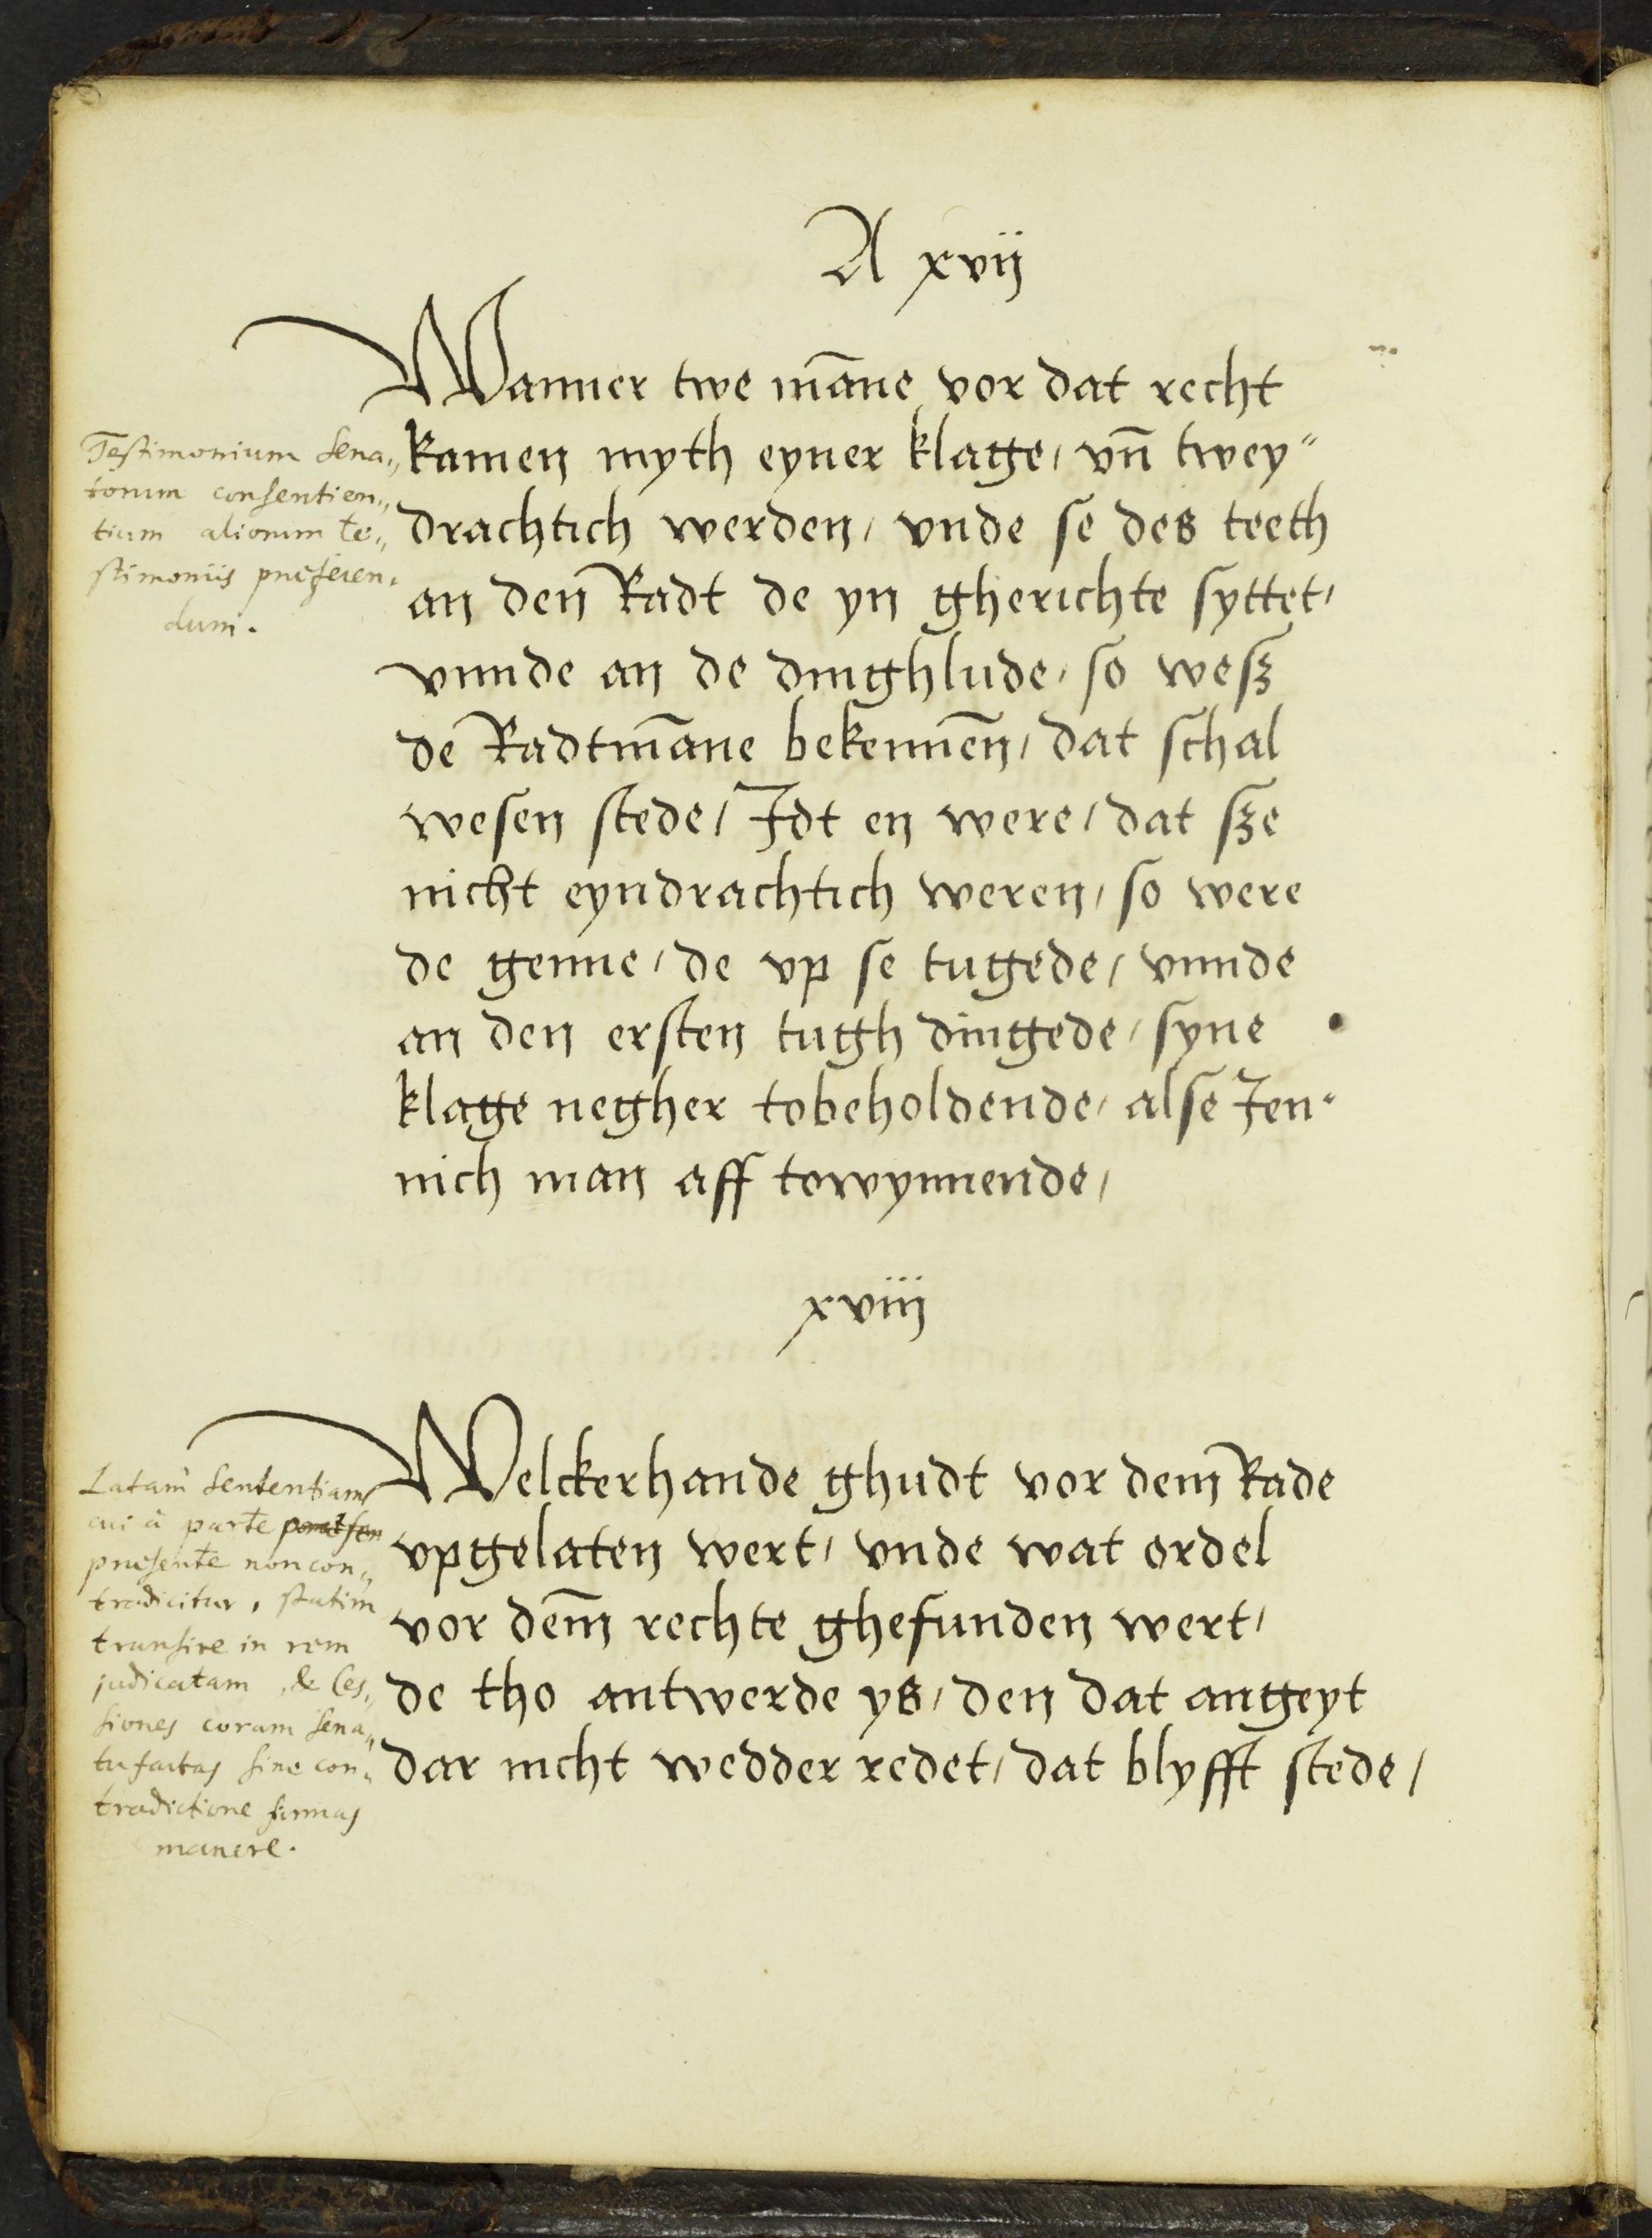 A xvij
Wanner twe mãne vor dat recht
kamen myth eyner klage, vñ twey"
drachtich werden, vnde se des teeth
an den Radt de yn gherichte syttet,
vnnde an de dinghlude, so wesz
de Radtmãne bekennẽn, dat schal
wesen stede, Idt en were, dat sze
nicht eyndrachtich weren, so were
de genne, de vp se tugede, vnnde
an den ersten tugh dingede, syne
klage negher tobeholdende, alse Jen"
nich man aff towynnende,
Testimonium Sena„
torum consentien„
tium aliorum te„
stimoniis præferen„
dum.
xviij
Welckerhande ghudt vor dem Rade
vpgelaten wert, vnde wat ordel
vor dem̄ rechte ghefunden wert,
de tho antwerde ys, den dat angeyt
dar nicht wedder redet, dat blyfft stede,
Latam sententiam
cui à parte
præsente non con„
tradicitur, statim
transire in rem
judicatam, & Ces„
siones coram sena„
tu factas sine con„
tradictione firmas
manere.